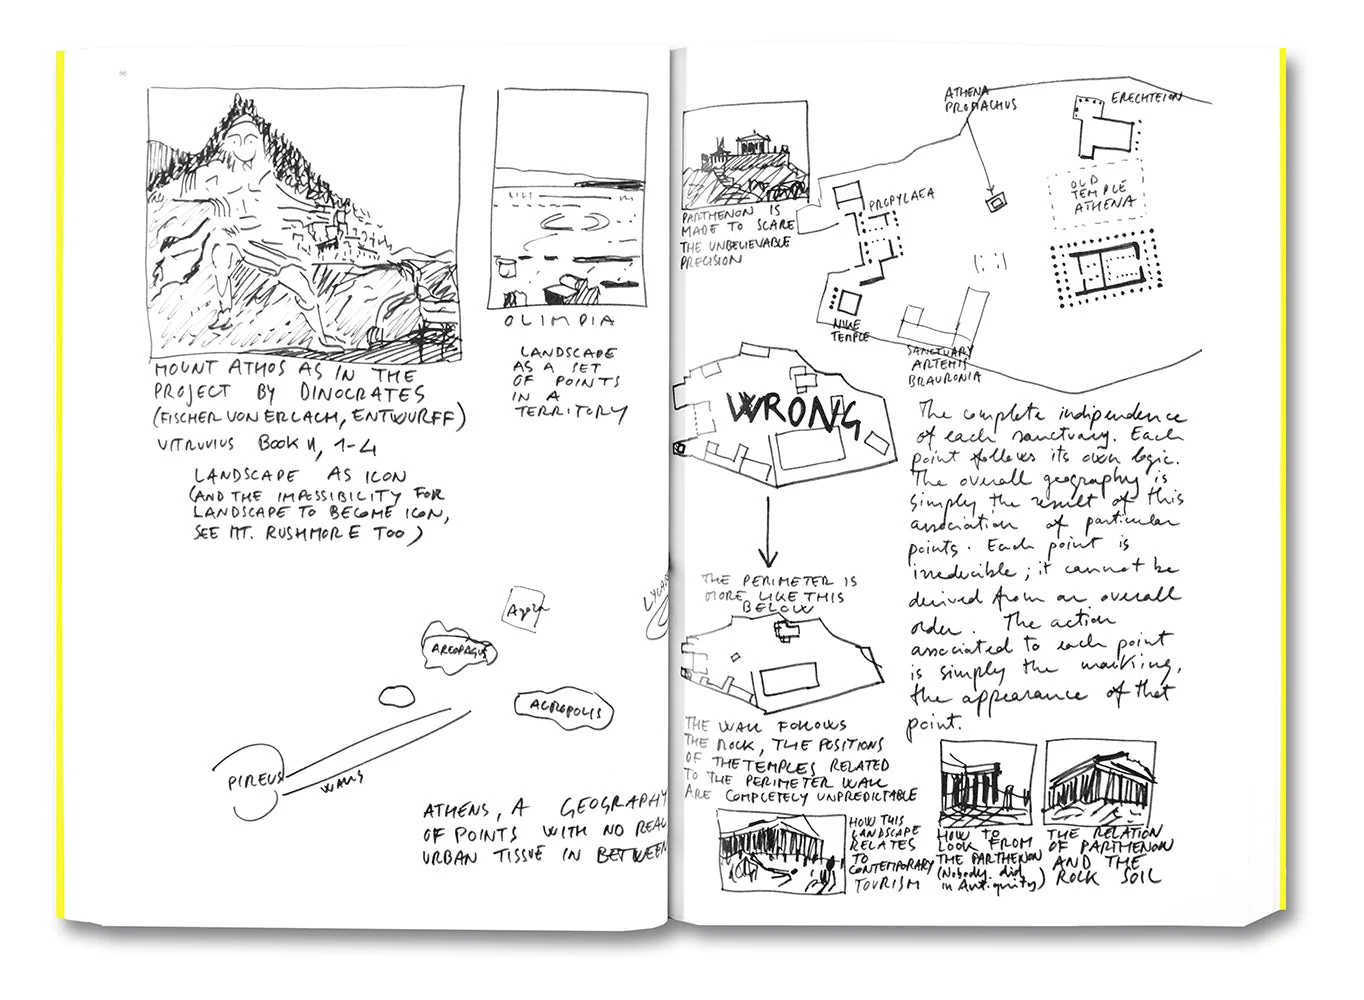 96
MOUNT ATHOS AS IN THE
PROJECT BY DINOCRATES
(FISCHER VON ERLACH, ENTWURFF)
VITRUVIUS BOOK II, 1-4
LANDSCAPE AS ICON
(AND THE IMPOSSIBILITY FOR
LANDSCAPE TO BECOME ICON,
SEE MT. RUSHMORE TOO)
OLIMPIA
LANDSCAPE
AS A SET
OF POINTS
IN A
TERRITORY
Agora
AREOPAGUS
ACROPOLIS
PIREUS
WALLS
ATHENS, A GEOGRAPHY
OF POINTS WITH NO REAL
URBAN TISSUE IN BETWEEN
PARTHENON IS
MADE TO SCARE
THE UNBELIEVABLE
PRECISION
ATHENA
PROMACHUS
ERECHTEION
PROPYLAEA
OLD
TEMPLE
ATHENA
NIKE
TEMPLE
SANCTUARY
ARTEMIS
BRAURONIA
WRONG
THE PERIMETER IS
MORE LIKE THIS
BELOW
THE WALL FOLLOWS
THE ROCK, THE POSITIONS
OF THE TEMPLES RELATED
TO THE PERIMETER WALL
ARE COMPLETELY UNPREDICTABLE
The complete indipendence
of each sanctuary. Each
point follows its own logic.
The overall geography is
simply the result of this
association of particular
points. Each point is
irreducible; it cannot be
derived from an overall
order. The action
associated to each point
is simply the marking,
the appearance of that
point.
HOW THIS
LANDSCAPE
RELATES
TO
CONTEMPORARY
TOURISM
HOW TO
LOOK FROM
THE PARTHENON
(Nobody did
in Antiquity)
THE RELATION
OF PARTHENON
AND THE
ROCK SOIL